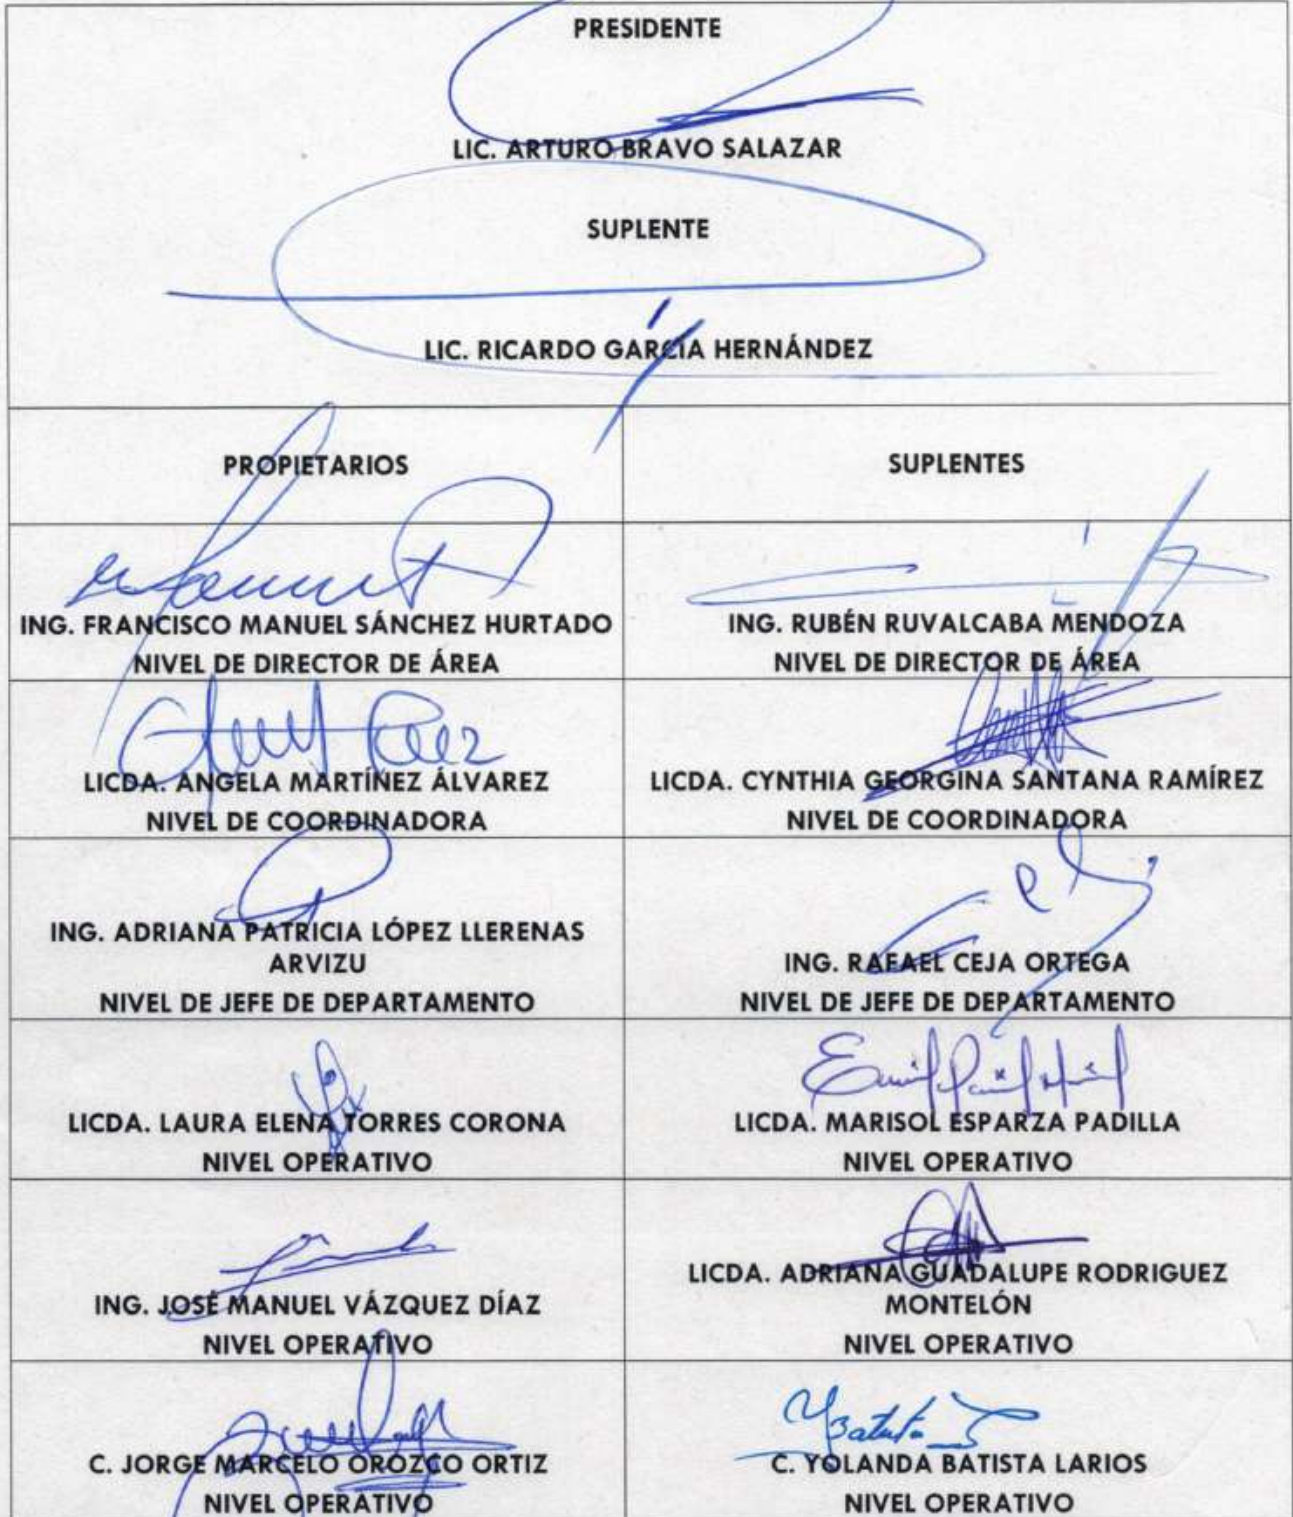 PRESIDENTE
LIC. ARTURO BRAVO SALAZAR
SUPLENTE
LIC. RICARDO GARCÍA HERNÁNDEZ
PROPIETARIOS
SUPLENTES
ING. FRANCISCO MANUEL SÁNCHEZ HURTADO
NIVEL DE DIRECTOR DE ÁREA
ING. RUBÉN RUVALCABA MENDOZA
NIVEL DE DIRECTOR DE ÁREA
LICDA. ANGELA MARTÍNEZ ÁLVAREZ
NIVEL DE COORDINADORA
LICDA. CYNTHIA GEORGINA SANTANA RAMÍREZ
NIVEL DE COORDINADORA
ING. ADRIANA PATRICIA LÓPEZ LLERENAS
ARVIZU
NIVEL DE JEFE DE DEPARTAMENTO
ING. RAFAEL CEJA ORTEGA
NIVEL DE JEFE DE DEPARTAMENTO
LICDA. LAURA ELENA TORRES CORONA
NIVEL OPERATIVO
LICDA. MARISOL ESPARZA PADILLA
NIVEL OPERATIVO
ING. JOSÉ MANUEL VÁZQUEZ DÍAZ
NIVEL OPERATIVO
LICDA. ADRIANA GUADALUPE RODRIGUEZ
MONTELÓN
NIVEL OPERATIVO
C. JORGE MARCELO OROZCO ORTIZ
NIVEL OPERATIVO
C. YOLANDA BATISTA LARIOS
NIVEL OPERATIVO